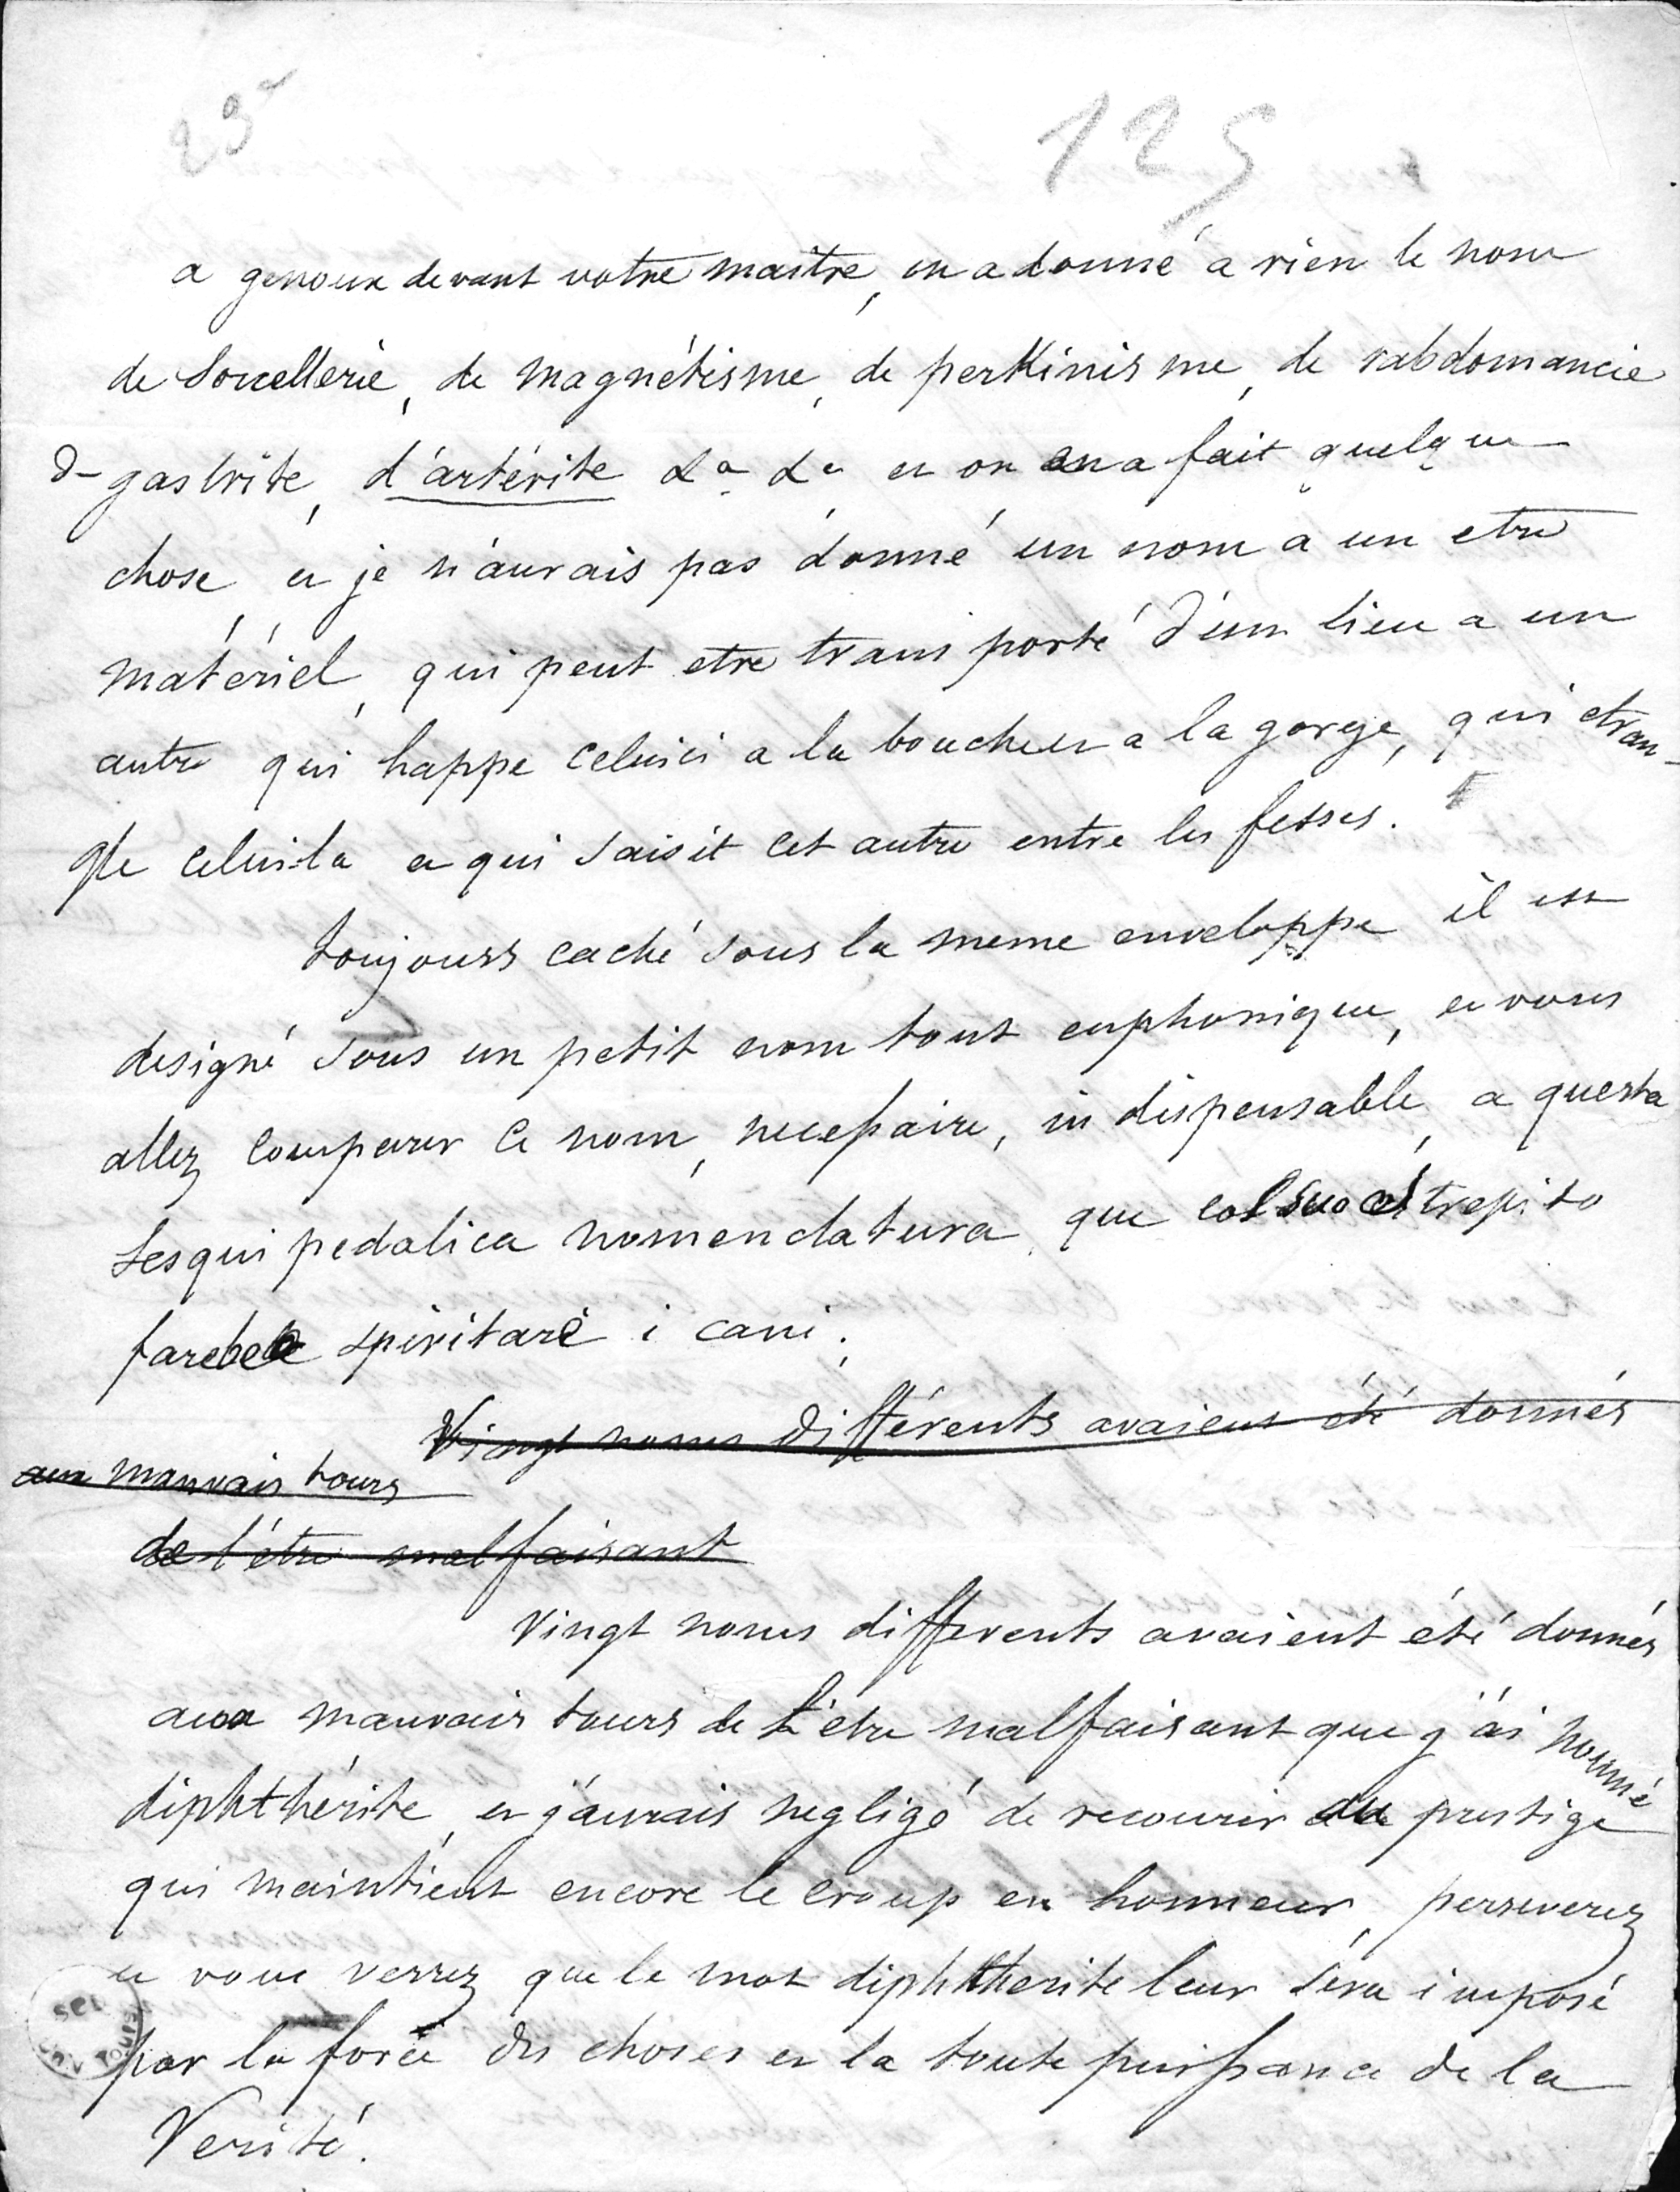 29
125
a genoux devant votre maître, on a donné a rien le nom
de Sorcellerie, de magnétisme, de perkinisme, de rabdomancie
de gastrite, d'artérite &a &a et on en a fait quelque
chose et je n'aurais pas donné un nom a un etre
matériel, qui peut etre transporté d'un lieu a un
autre qui happe celuici a la bouche et a la gorge, qui etran-
gle celuila et qui saisit cet autre entre les fesses.
toujours caché sous la meme enveloppe il est
designé sous un petit nom tout euphonique, et vous
allez comparer ce nom, necessaire, indispensable, a questa
sesquipedalica nomenclatura que col suo strepito
farebbe spiritare i cani.
Vingt noms différents avaient été donnés
aux mauvais tours
de l'être malfaisant
Vingt noms differents avaient été donnés
aux mauvais tours de l'etre malfaisant que j'ai nommé
diphthérite, et j'aurais negligé de recourir au prestige
qui maintient encore le croup en honneur, perseverez
et vous verrez que le mot diphtherite leur sera imposé
par la force des choses et la toute puissance de la
Verité.